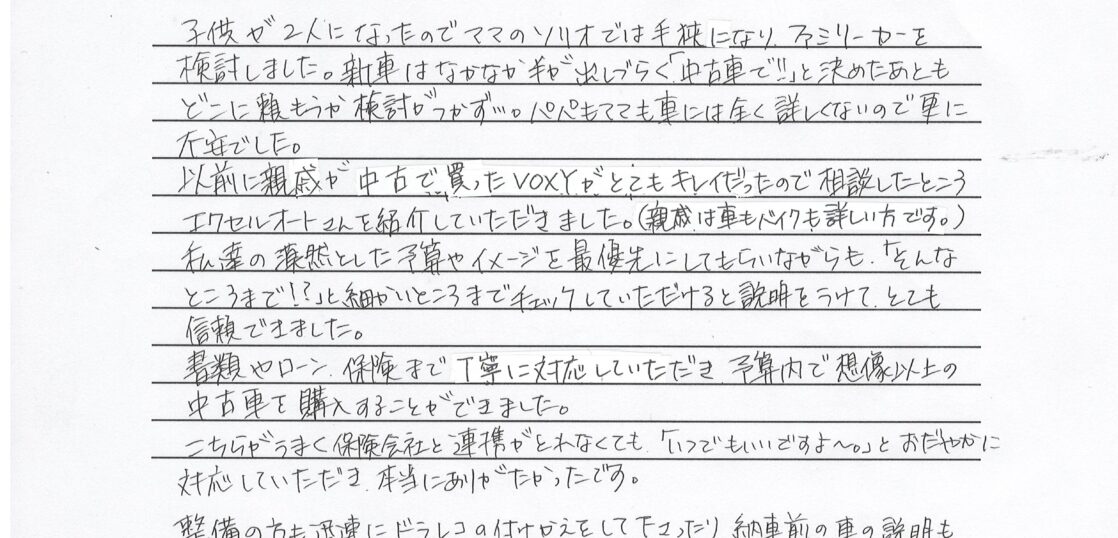 子供が2人になったのでママのソリオでは手狭になり、ファミリーカーを
検討しました。新車はなかなか手が出しづらく「中古車で!!」と決めたあとも
どこに頼もうか検討がつかず…。パパもママも車には全く詳しくないので更に
不安でした。
以前に親戚が中古で買ったVOXYがとてもキレイだったので相談したところ
エクセルオートさんを紹介していただきました。(親戚は車もバイクも詳しい方です。)
私達の漠然とした予算やイメージを最優先にしてもらいながらも、「そんな
ところまで!?」と細かいところまでチェックしていただけると説明をうけて、とても
信頼できました。
書類やローン、保険まで丁寧に対応していただき、予算内で想像以上の
中古車を購入することができました。
こちらがうまく保険会社と連携がとれなくても、「いつでもいいですよ〜。」とおだやかに
対応していただき、本当にありがたかったです。
整備の方も迅速にドラレコの付けかえをして下さったり、納車前の車の説明も